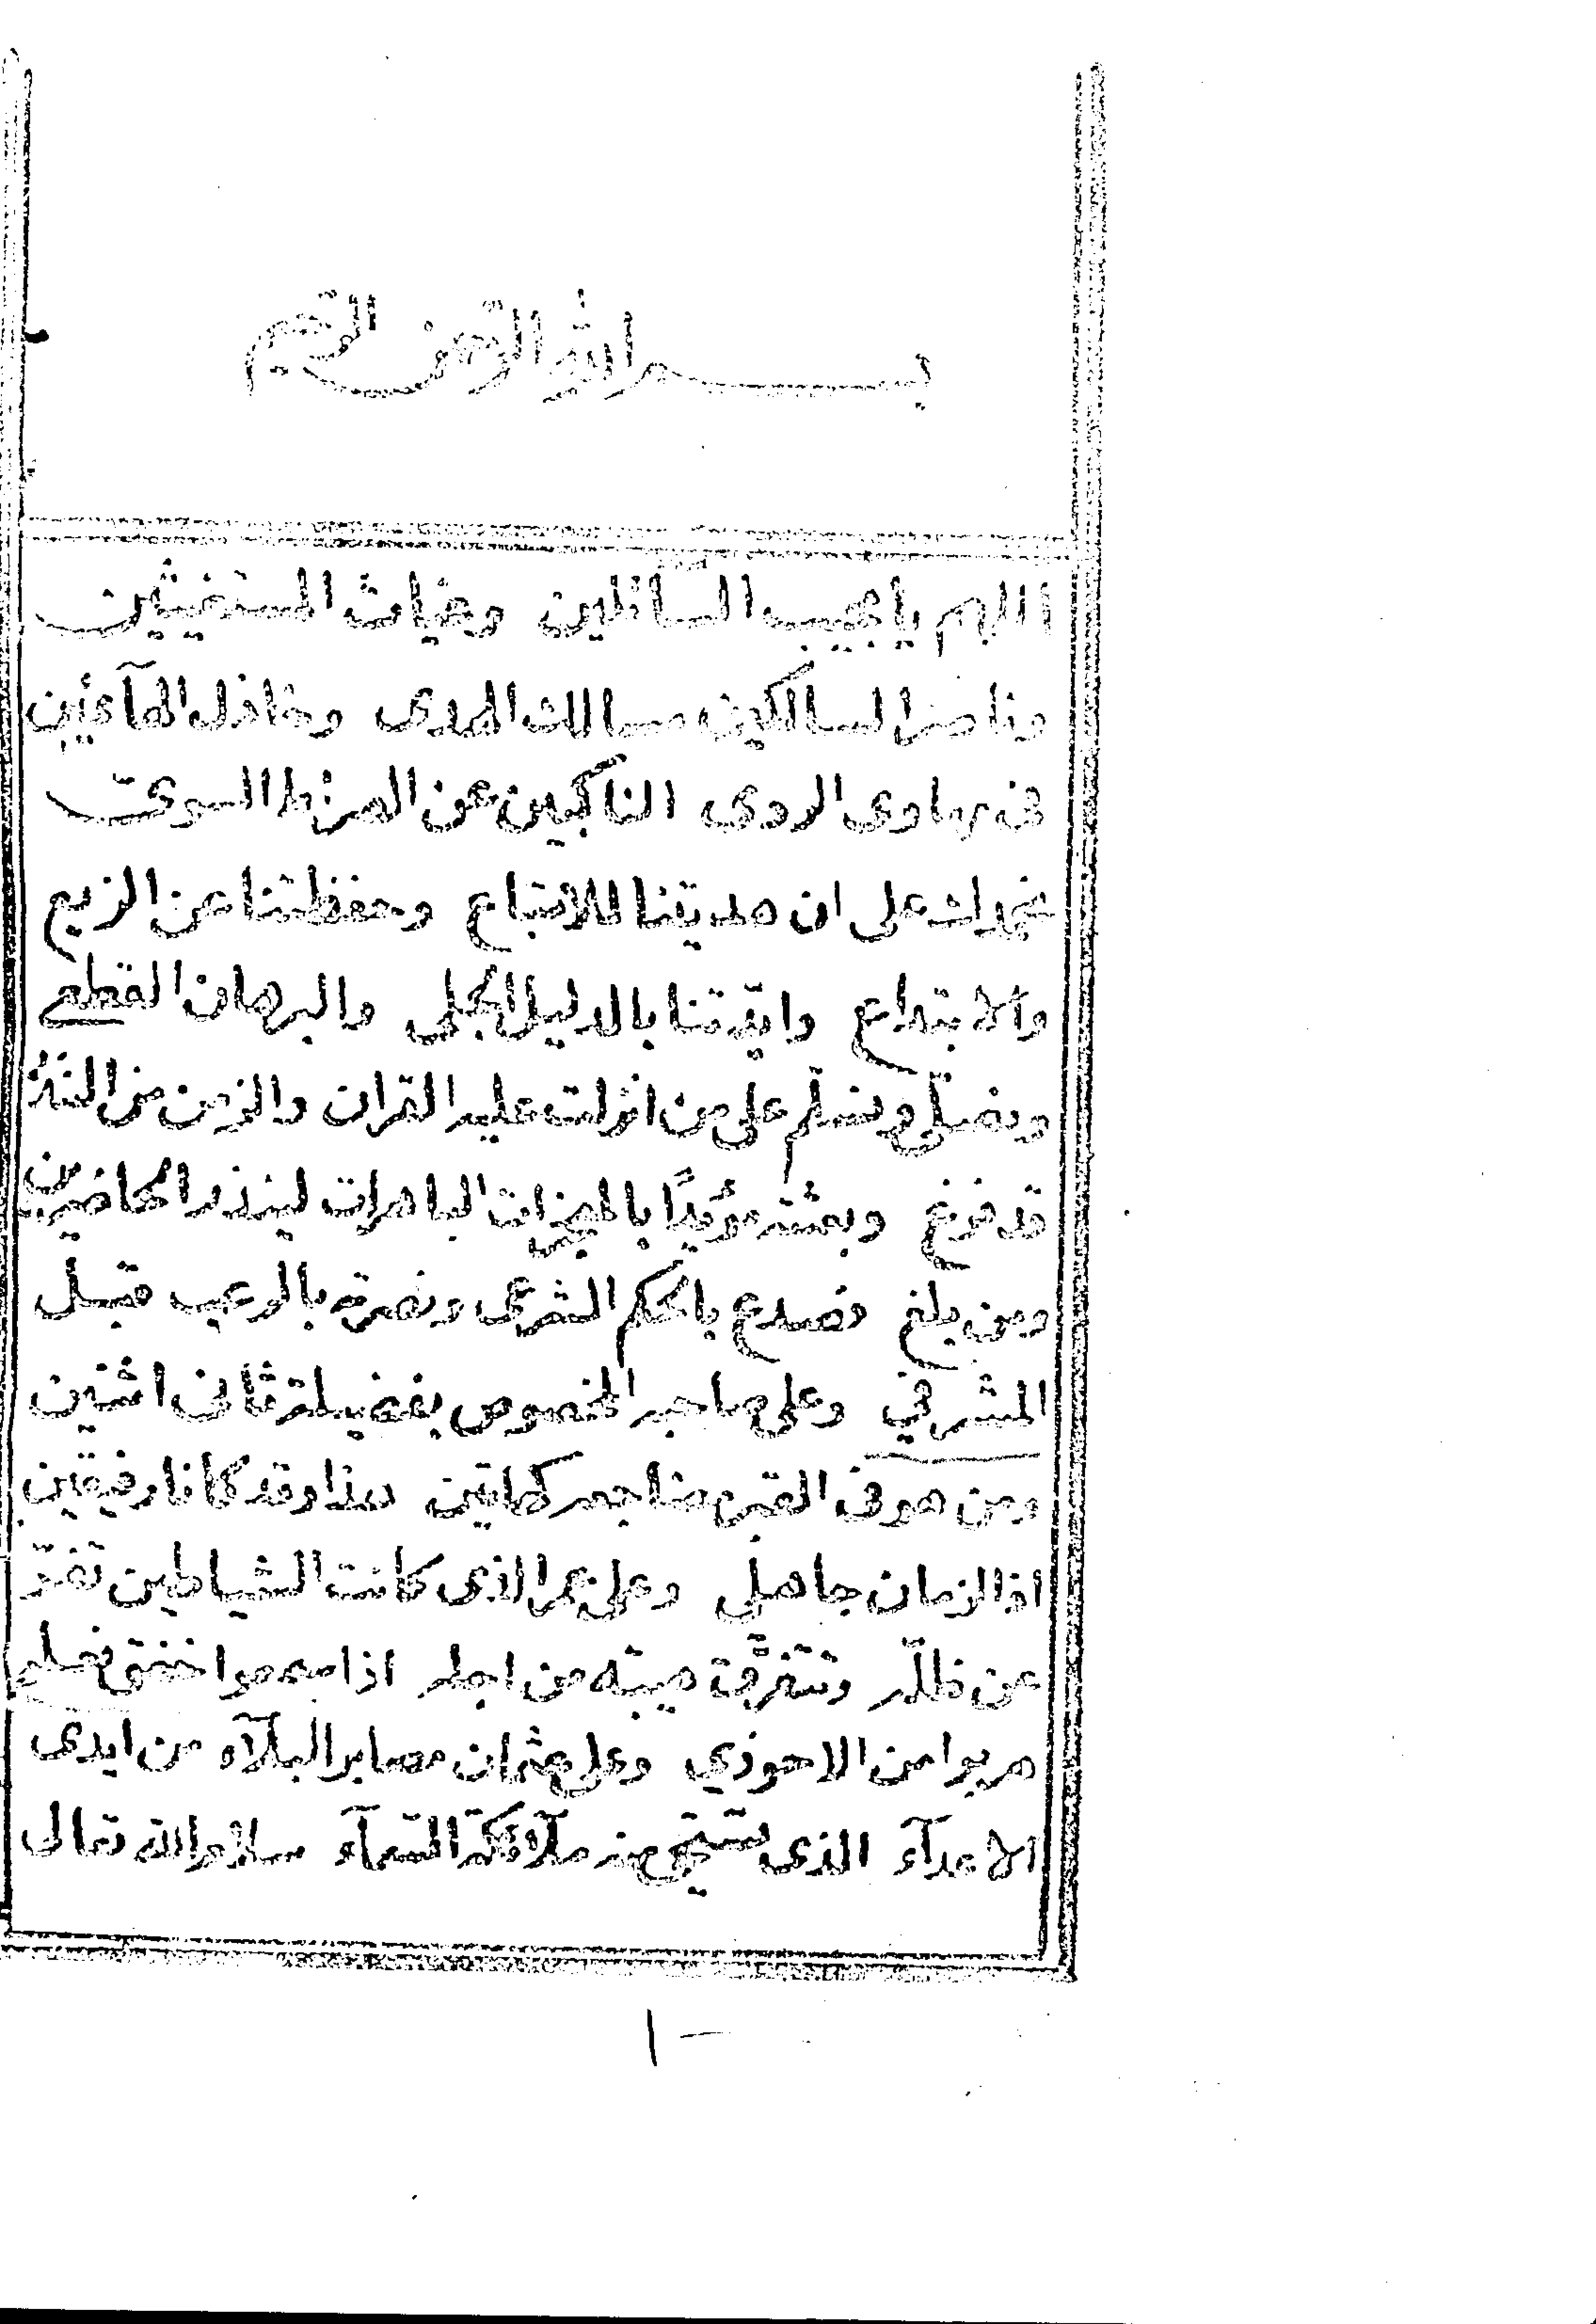 بسم الله الرحمن الرحيم
اللهم يا مجيب السائلين وغياث المستغيثين
وناصر السالكين مسالك الهدى وخاذل الهآئمين
فى مهاوى الردى الناكبين عن الصراط السوى
نحمدك على ان هديتنا للاتباع وحفظتنا عن الزيع
والابتداع وايّدتنا بالدليل الجلى والبرهان القطعى
ونصلّى ونسلّم على من انزلت عليه القران والزمن من
قد فرغ وبعثته مؤيّدًا بالمعجزات الباهرات لينذر الحاضرين
ومن بلغ فصدع بالحكم الشرعى ونصرته بالرعب قبل
المشرفي وعلى صاحبه المخصوص بفضيلة ثانى اثنين
ومن هو فى القبر مضاجعه كهاتين هذا وقد كانا رفيقين
اذ الزمان جاهلي وعلى عمر الذى كانت الشياطين تفرّ
عن ظلّه وتتفرّق هيبته من اجله اذا سمعوا خفق نعله
هربوا من الاحوذي وعلى عثمان مصابر البلآء من ايدى
الاعدآء الذى تستحيى منه ملآئكة السمآء سلام الله تعالى
١